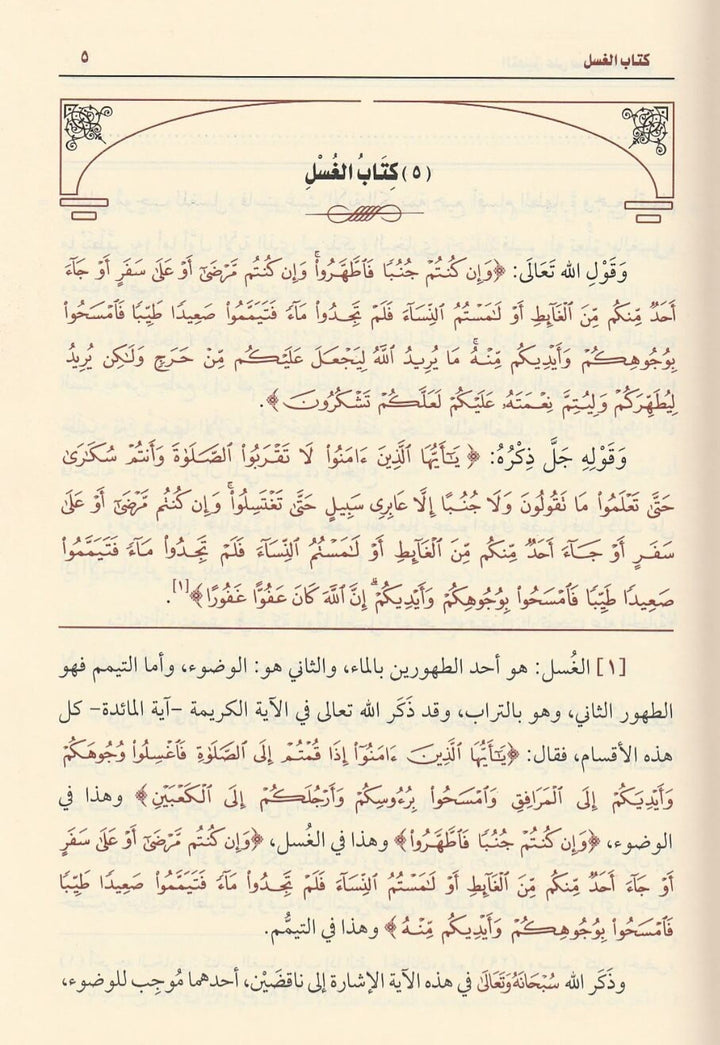 كتاب الغسل ٥
(٥) كِتَابُ الغُسْلِ
وَقَوْلِ الله تَعَالَى: ﴿وَإِن كُنتُمْ جُنُبًا فَاطَّهَّرُوا۟ۚ وَإِن كُنتُم مَّرْضَىٰٓ أَوْ عَلَىٰ سَفَرٍ أَوْ جَآءَ
أَحَدٌ مِّنكُم مِّنَ ٱلْغَآئِطِ أَوْ لَٰمَسْتُمُ ٱلنِّسَآءَ فَلَمْ تَجِدُوا۟ مَآءً فَتَيَمَّمُوا۟ صَعِيدًا طَيِّبًا فَٱمْسَحُوا۟
بِوُجُوهِكُمْ وَأَيْدِيكُم مِّنْهُۚ مَا يُرِيدُ ٱللَّهُ لِيَجْعَلَ عَلَيْكُم مِّنْ حَرَجٍ وَلَٰكِن يُرِيدُ
لِيُطَهِّرَكُمْ وَلِيُتِمَّ نِعْمَتَهُۥ عَلَيْكُمْ لَعَلَّكُمْ تَشْكُرُونَ﴾.
وَقَوْلِهِ جَلَّ ذِكْرُهُ: ﴿يَٰٓأَيُّهَا ٱلَّذِينَ ءَامَنُوا۟ لَا تَقْرَبُوا۟ ٱلصَّلَوٰةَ وَأَنتُمْ سُكَٰرَىٰ
حَتَّىٰ تَعْلَمُوا۟ مَا تَقُولُونَ وَلَا جُنُبًا إِلَّا عَابِرِى سَبِيلٍ حَتَّىٰ تَغْتَسِلُوا۟ۚ وَإِن كُنتُم مَّرْضَىٰٓ أَوْ عَلَىٰ
سَفَرٍ أَوْ جَآءَ أَحَدٌ مِّنكُم مِّنَ ٱلْغَآئِطِ أَوْ لَٰمَسْتُمُ ٱلنِّسَآءَ فَلَمْ تَجِدُوا۟ مَآءً فَتَيَمَّمُوا۟
صَعِيدًا طَيِّبًا فَٱمْسَحُوا۟ بِوُجُوهِكُمْ وَأَيْدِيكُمْۗ إِنَّ ٱللَّهَ كَانَ عَفُوًّا غَفُورًا﴾[١].
[١] الغُسل: هو أحد الطهورين بالماء، والثاني هو: الوضوء، وأما التيمم فهو
الطهور الثاني، وهو بالتراب، وقد ذَكَر الله تعالى في الآية الكريمة -آية المائدة- كل
هذه الأقسام، فقال: ﴿يَٰٓأَيُّهَا ٱلَّذِينَ ءَامَنُوٓا۟ إِذَا قُمْتُمْ إِلَى ٱلصَّلَوٰةِ فَٱغْسِلُوا۟ وُجُوهَكُمْ
وَأَيْدِيَكُمْ إِلَى ٱلْمَرَافِقِ وَٱمْسَحُوا۟ بِرُءُوسِكُمْ وَأَرْجُلَكُمْ إِلَى ٱلْكَعْبَيْنِ﴾ وهذا في
الوضوء، ﴿وَإِن كُنتُمْ جُنُبًا فَٱطَّهَّرُوا۟﴾ وهذا في الغُسل، ﴿وَإِن كُنتُم مَّرْضَىٰٓ أَوْ عَلَىٰ سَفَرٍ
أَوْ جَآءَ أَحَدٌ مِّنكُم مِّنَ ٱلْغَآئِطِ أَوْ لَٰمَسْتُمُ ٱلنِّسَآءَ فَلَمْ تَجِدُوا۟ مَآءً فَتَيَمَّمُوا۟ صَعِيدًا طَيِّبًا
فَٱمْسَحُوا۟ بِوُجُوهِكُمْ وَأَيْدِيكُم مِّنْهُ﴾ وهذا في التيمُّم.
وذَكَر الله سُبْحَانَهُ وَتَعَالَىٰ في هذه الآية الإشارة إلى ناقضَيْن، أحدهما مُوجِب للوضوء،